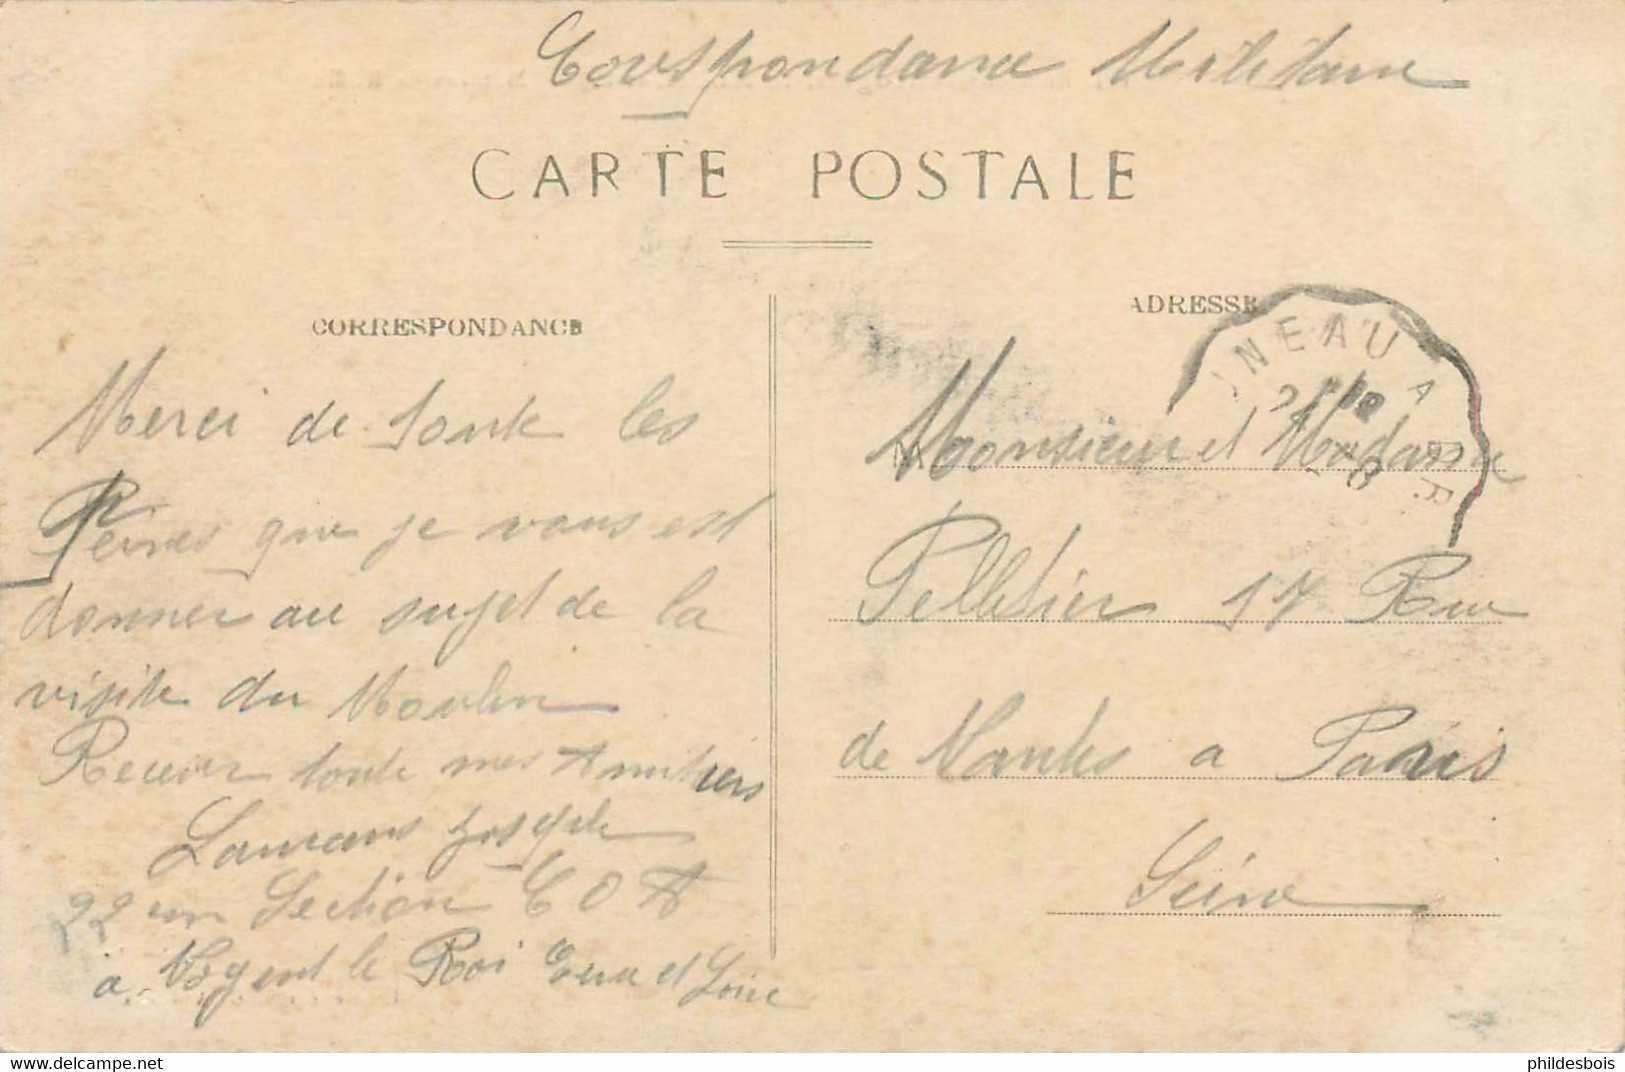 Correspondance Militaire
CARTE POSTALE
CORRESPONDANCE
ADRESSE
Merci de toute les
Peines que je vous est
donner au sujet de la
visite du Moulin
Recever toute mes Amitiers
Joseph
22 em Section C O A
a Nogent le Roi Eure et Loire
Monsieur et Madame
Pelletier 17 Rue
de Nantes a Paris
Seine
NEAU A
delcampe.net
phildesbois